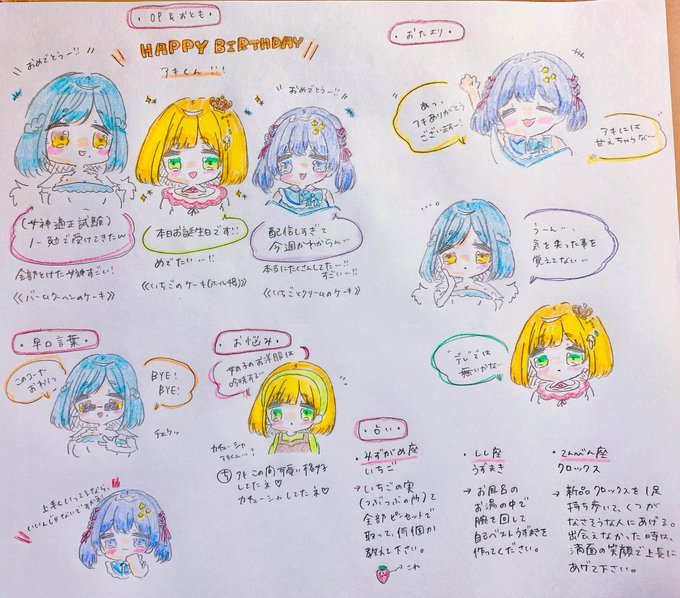 OP & おとも
HAPPY BIRTHDAY
アキくん…!
おめでとうー!!
おめでとうー!!
(女神適正試験)
1秒で受けてきたw
全部とけた女神すごい!
《バームクーヘンのケーキ》
本日お誕生日です!!
めでたい…!!
《いちごのケーキ(ホール4号)》
配信しすぎて
今週かわからん…
本当にたくさんしてた…!!
すごい…!!
《いちごとクリームのケーキ》
おたより
あっ、
アキありがとう
ございますー!
アキには
甘えちゃうな〜
うーん…、
気を失った事を
覚えてない…
"デレ"では
無いかな…
早口言葉
このコーナー
おわりっ
BYE!
BYE!
チェケッ
上手くいってるなら、
いいんじゃないですかぁ?
お悩み
女の子のお洋服は
吟味する…
カチューシャ
アキくん…?
アキこの間可愛い格好
してたネ♡
カチューシャしてたネ♡
占い
・みずがめ座
いちご
→いちごの実
(つぶつぶの所)を
全部ピンセットで
取って、何個か
教えて下さい。
これ
・しし座
うずまき
→お風呂の
お湯の中で
腕を回して
自己ベストうずまきを
作ってください。
・てんびん座
クロックス
→新品クロックスを1足
持ち歩いて、くつが
なさそうな人にあげる。
出会えなかった時は、
満面の笑顔で上長に
あげて下さい。